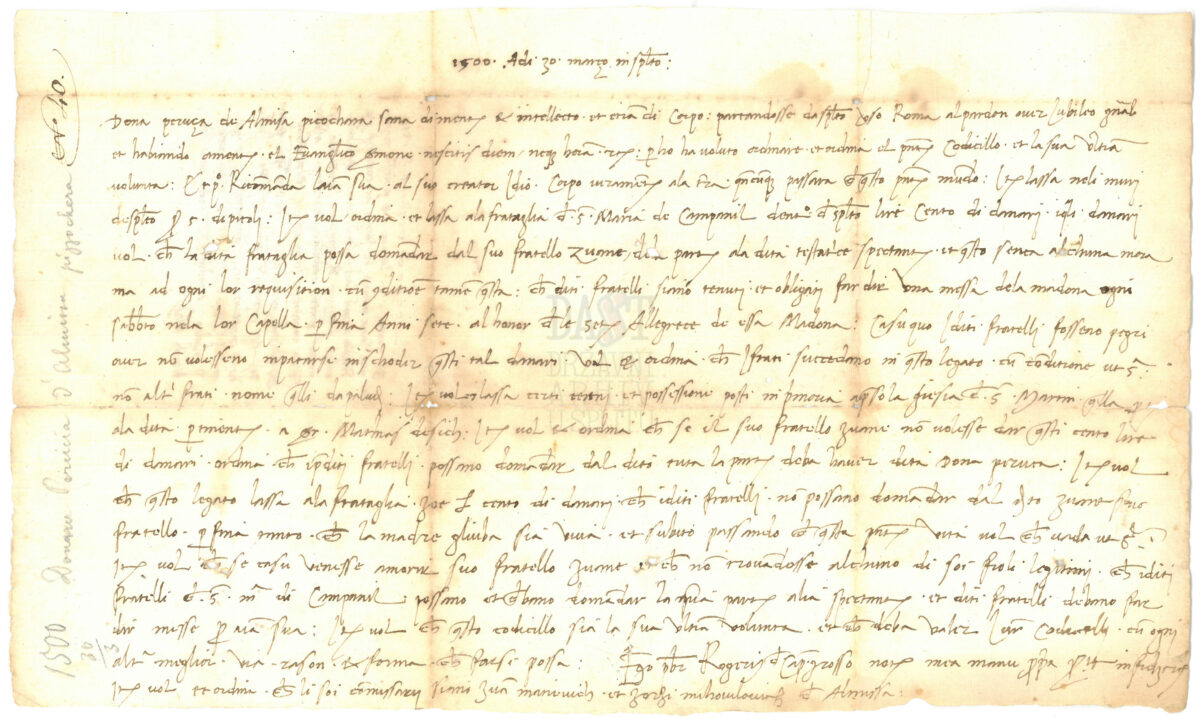 1500. Adi 30 março in spłto:
Dona peruça de Almisa picochara sana di mente et intellecto et etiã di Corpo: partandosse da spłto verso Roma al pardon over Jubileo gñal
et habiando a mente el Evangelico sermone nescitis diem neq horam per ho ha voluto ordinare et ordina el pñte Codicillo et la sua ultĩa
volunta: Et pº Ricomanda la aĩa sua al suo creator Idio Corpo veramente ala tr̃a passata de questo pñte mundo: Itẽ lassa neli muri
de spłto ꝑ s. di picoli: Itẽ vol ordina et lassa ala frataglia de S. Maria de Campanil dentº de spłto lire Cento di danari i qli danari
vol ch la dita frataglia possa domandar dal suo fratello Zuane dela parte ala dita testatrice spectante et questo senca alchuna mora
ma ad ogni lor requisition cũ conditione tamen questa: ch diti fratelli siano tenuti et obligati far dir una messa dela madona ogni
sabbato nela lor Capella ꝑ fina Anni sete al honor de le sete Allegrece de essa Madona: Casu quo I diti fratelli fosseno pegri
over nõ volesseno inpaciarse in schoder questi tal danari vol et ordina ch I frati succedano in questo legato cũ conditione ut sª
nõ altri frati nome quelli da palud: Itẽ vol et lassa certi tereni et possessione posti in pmoria apresso la giesia de S. Martin
ala dita ꝑtinente a Mathias Itẽ vol et ordina ch se il suo fratello Zuane nõ volesse dar questi cento lire
di danari ordina ch i pditi fratelli possano domandar dal dito tuta la parte deba haver dita Dona peruca: Itẽ vol
ch questo legato lassa ala frataglia zoe ł cento di danari ch i diti fratelli nõ possano domandar dal dito Zuane suo
fratello ꝑ fina tanto ch la madre gliuba sia viva et subito passando de questa pñte vita vol ch vada ut sª
Itẽ vol ch se casu venesse a morir suo fratello Zuane et ch nõ trovandosse alchuno di soi fioli legitimi ch i diti
fratelli de S. Mª di Campanil possano et debano domandar la parte a lia spectante et diti fratelli debano far
dir messe ꝑ aĩa sua: Itẽ vol ch questo codicillo sia la sua ultĩa volunta et ch deba valer iure Codicilli cũ ogni
altrª meglior via rason et forma ch farse possa: Ego pbr Rogeris de Capogrosso notº mea manu ꝓpa
Itẽ vol et ordina ch li soi comissary siano Zuan et Zorzi mihovilovich de Almissa:
1500 30/3 Donane Pervica d'Almissa pizzochera
Nº 40.